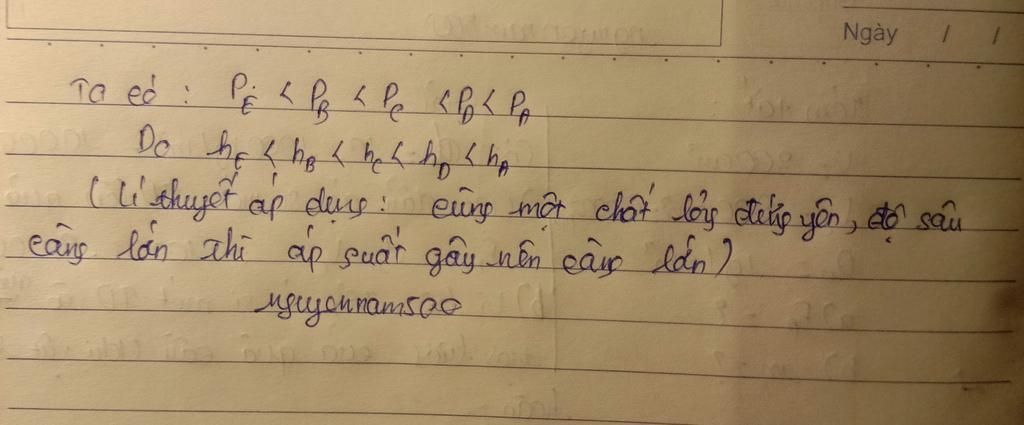 Ngày / /
Ta có : P_E < P_B < P_C < P_D < P_A
Do h_E < h_B < h_C < h_D < h_A
(Lí thuyết áp dụng : cùng một chất lỏng đứng yên, độ sâu
càng lớn thì áp suất gây nên càng lớn)
nguyennam500